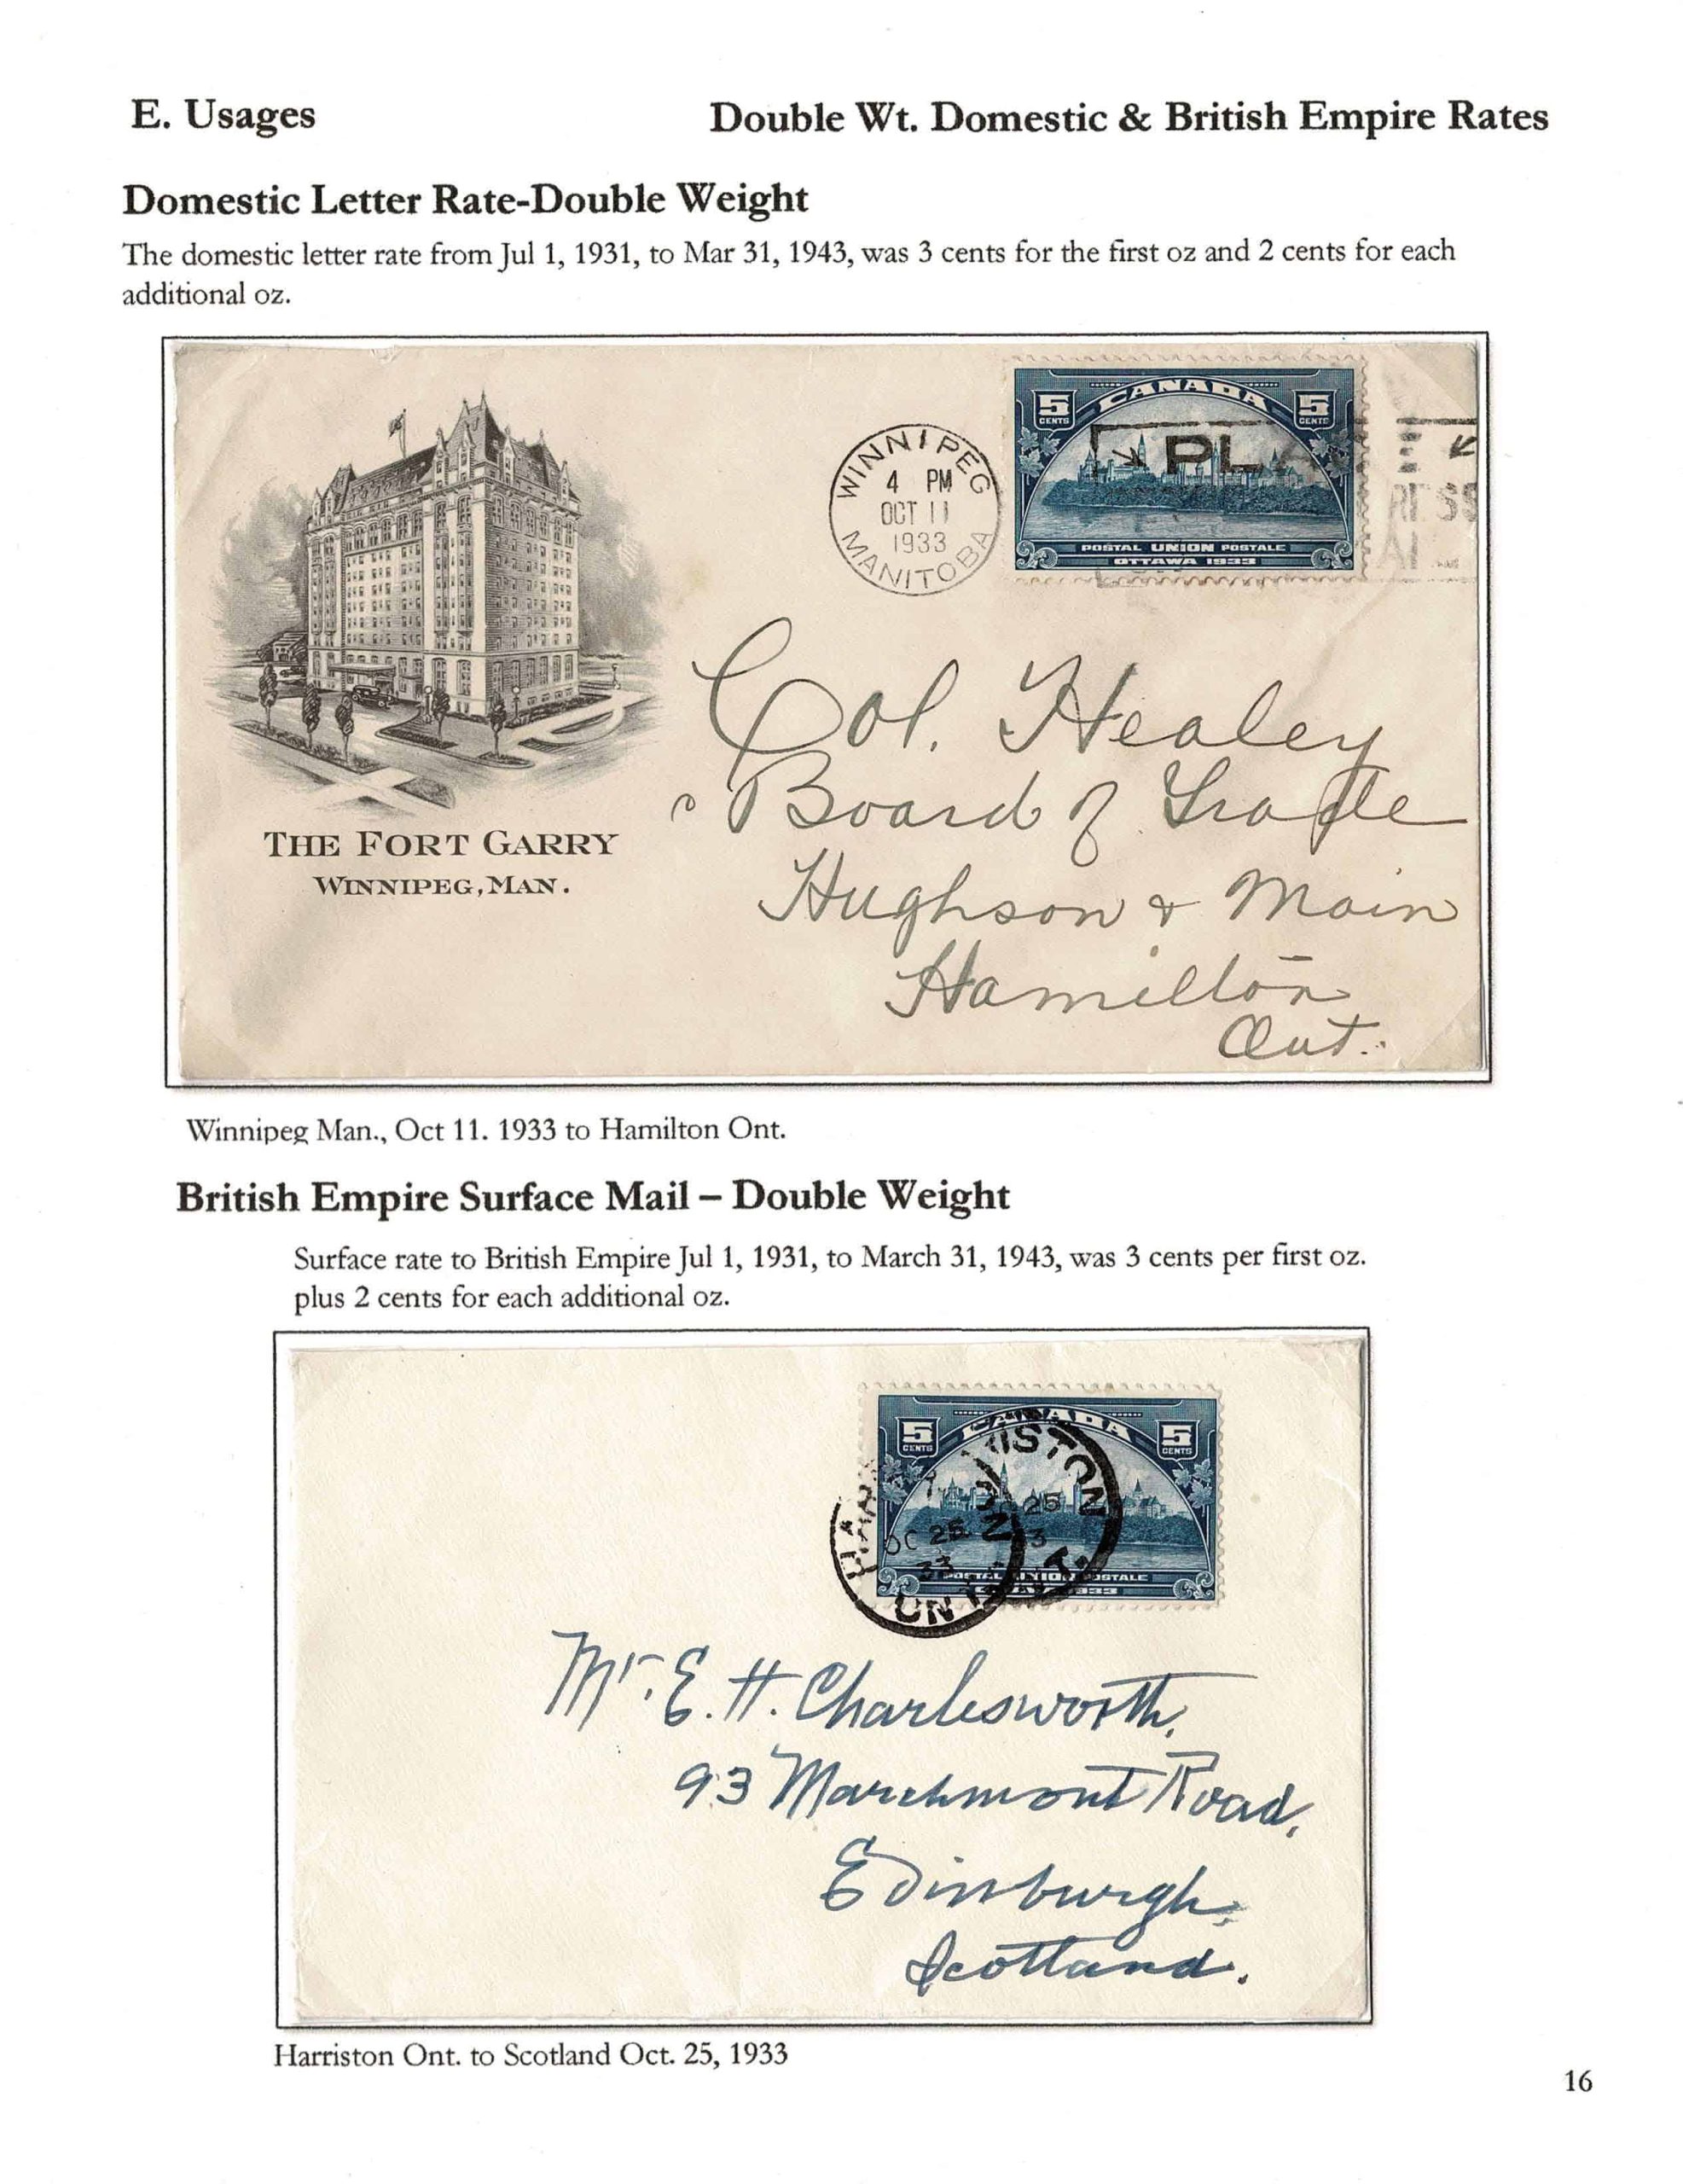 E. Usages
Double Wt. Domestic & British Empire Rates
Domestic Letter Rate-Double Weight
The domestic letter rate from Jul 1, 1931, to Mar 31, 1943, was 3 cents for the first oz and 2 cents for each
additional oz.
WINNIPEG
4 PM
OCT 11
1933
MANITOBA
CANADA
5 CENTS 5 CENTS
POSTAL UNION POSTALE
OTTAWA 1933
THE FORT GARRY
WINNIPEG, MAN.
Col. Healey
Board of Trade
Hughson & Main
Hamilton
Ont.
Winnipeg Man., Oct 11. 1933 to Hamilton Ont.
British Empire Surface Mail – Double Weight
Surface rate to British Empire Jul 1, 1931, to March 31, 1943, was 3 cents per first oz.
plus 2 cents for each additional oz.
CANADA
5 CENTS 5 CENTS
HARRISTON
OC 25
33
ONT.
POSTAL UNION POSTALE
1933
Mr. E. H. Charlesworth,
93 Marchmont Road,
Edinburgh,
Scotland.
Harriston Ont. to Scotland Oct. 25, 1933
16